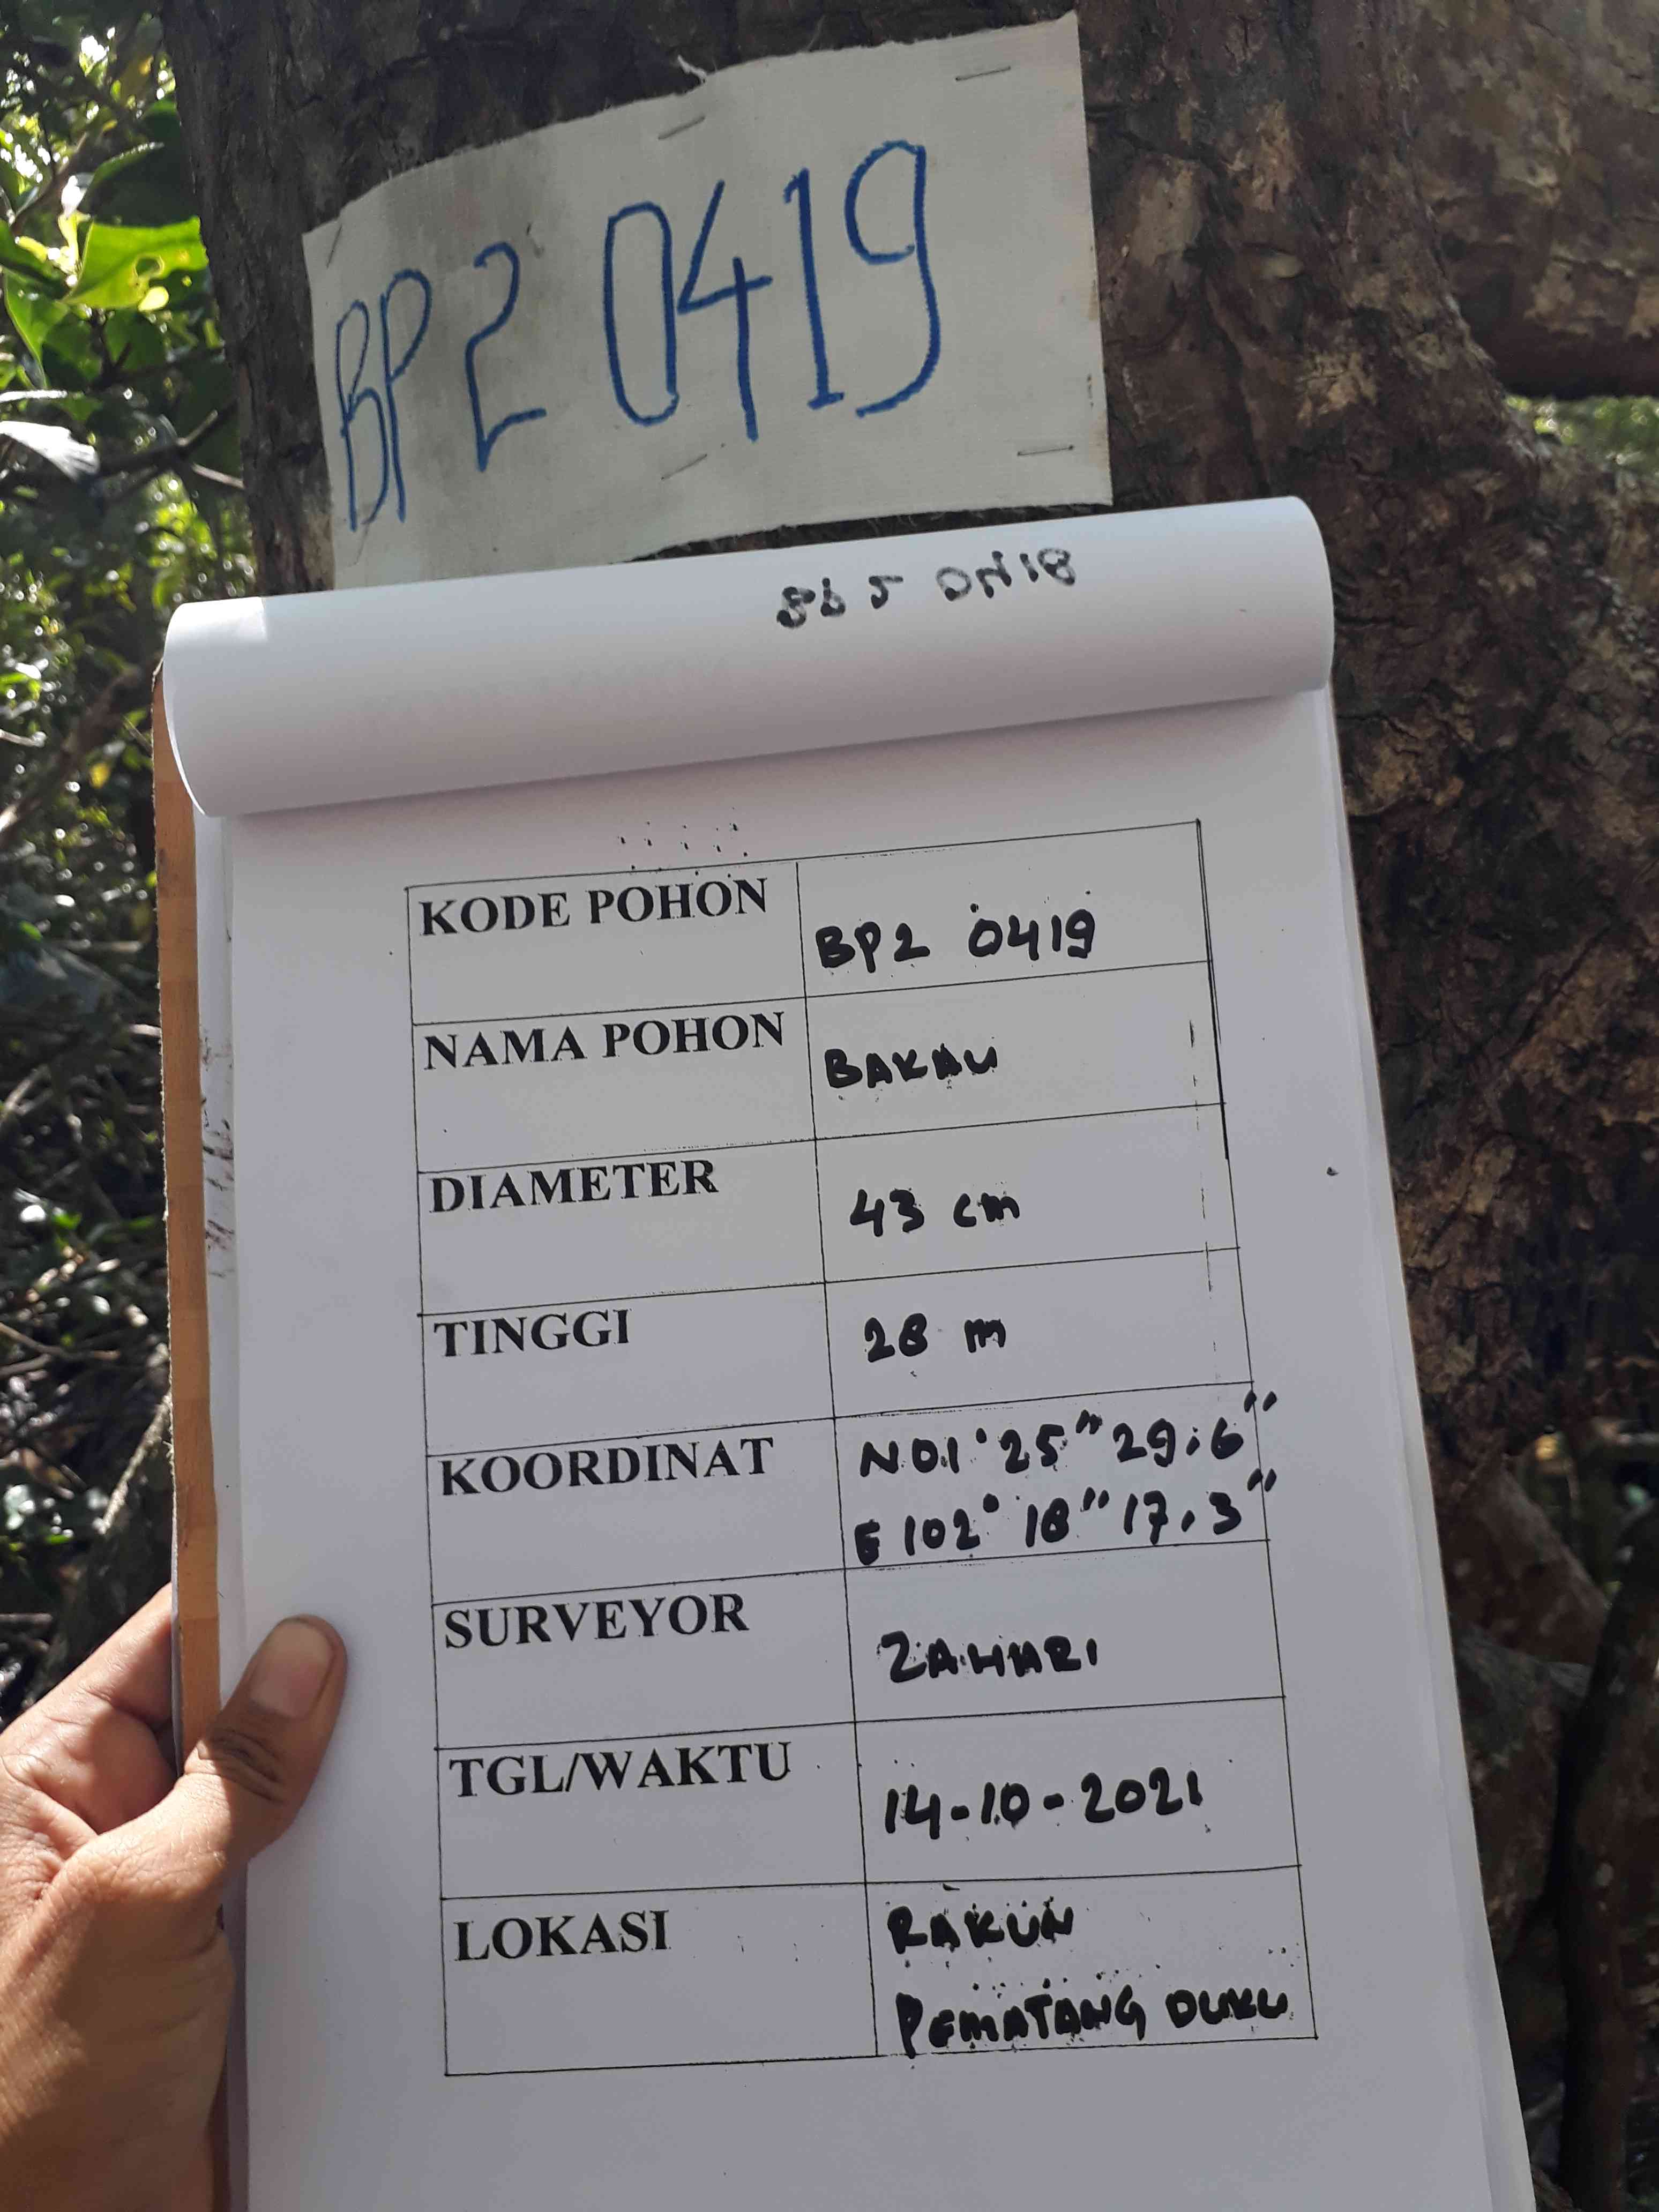 BP2 0419
KODE POHON BP2 0419
NAMA POHON BAKAU
DIAMETER 43 cm
TINGGI 28 m
KOORDINAT N 01° 25" 29.6"
E 102° 18" 17.3"
SURVEYOR ZAHARI
TGL/WAKTU 14-10-2021
LOKASI RAKUN
PEMATANG DUKU